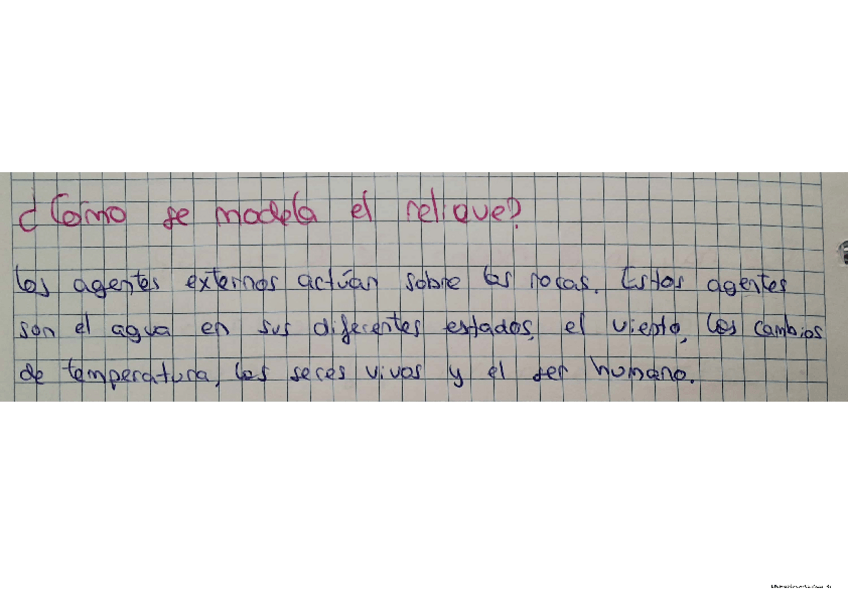 ¿Cómo se modela el relieve?
Los agentes externos actúan sobre las rocas. Estos agentes
son el agua en sus diferentes estados, el viento, los cambios
de temperatura, los seres vivos y el ser humano.